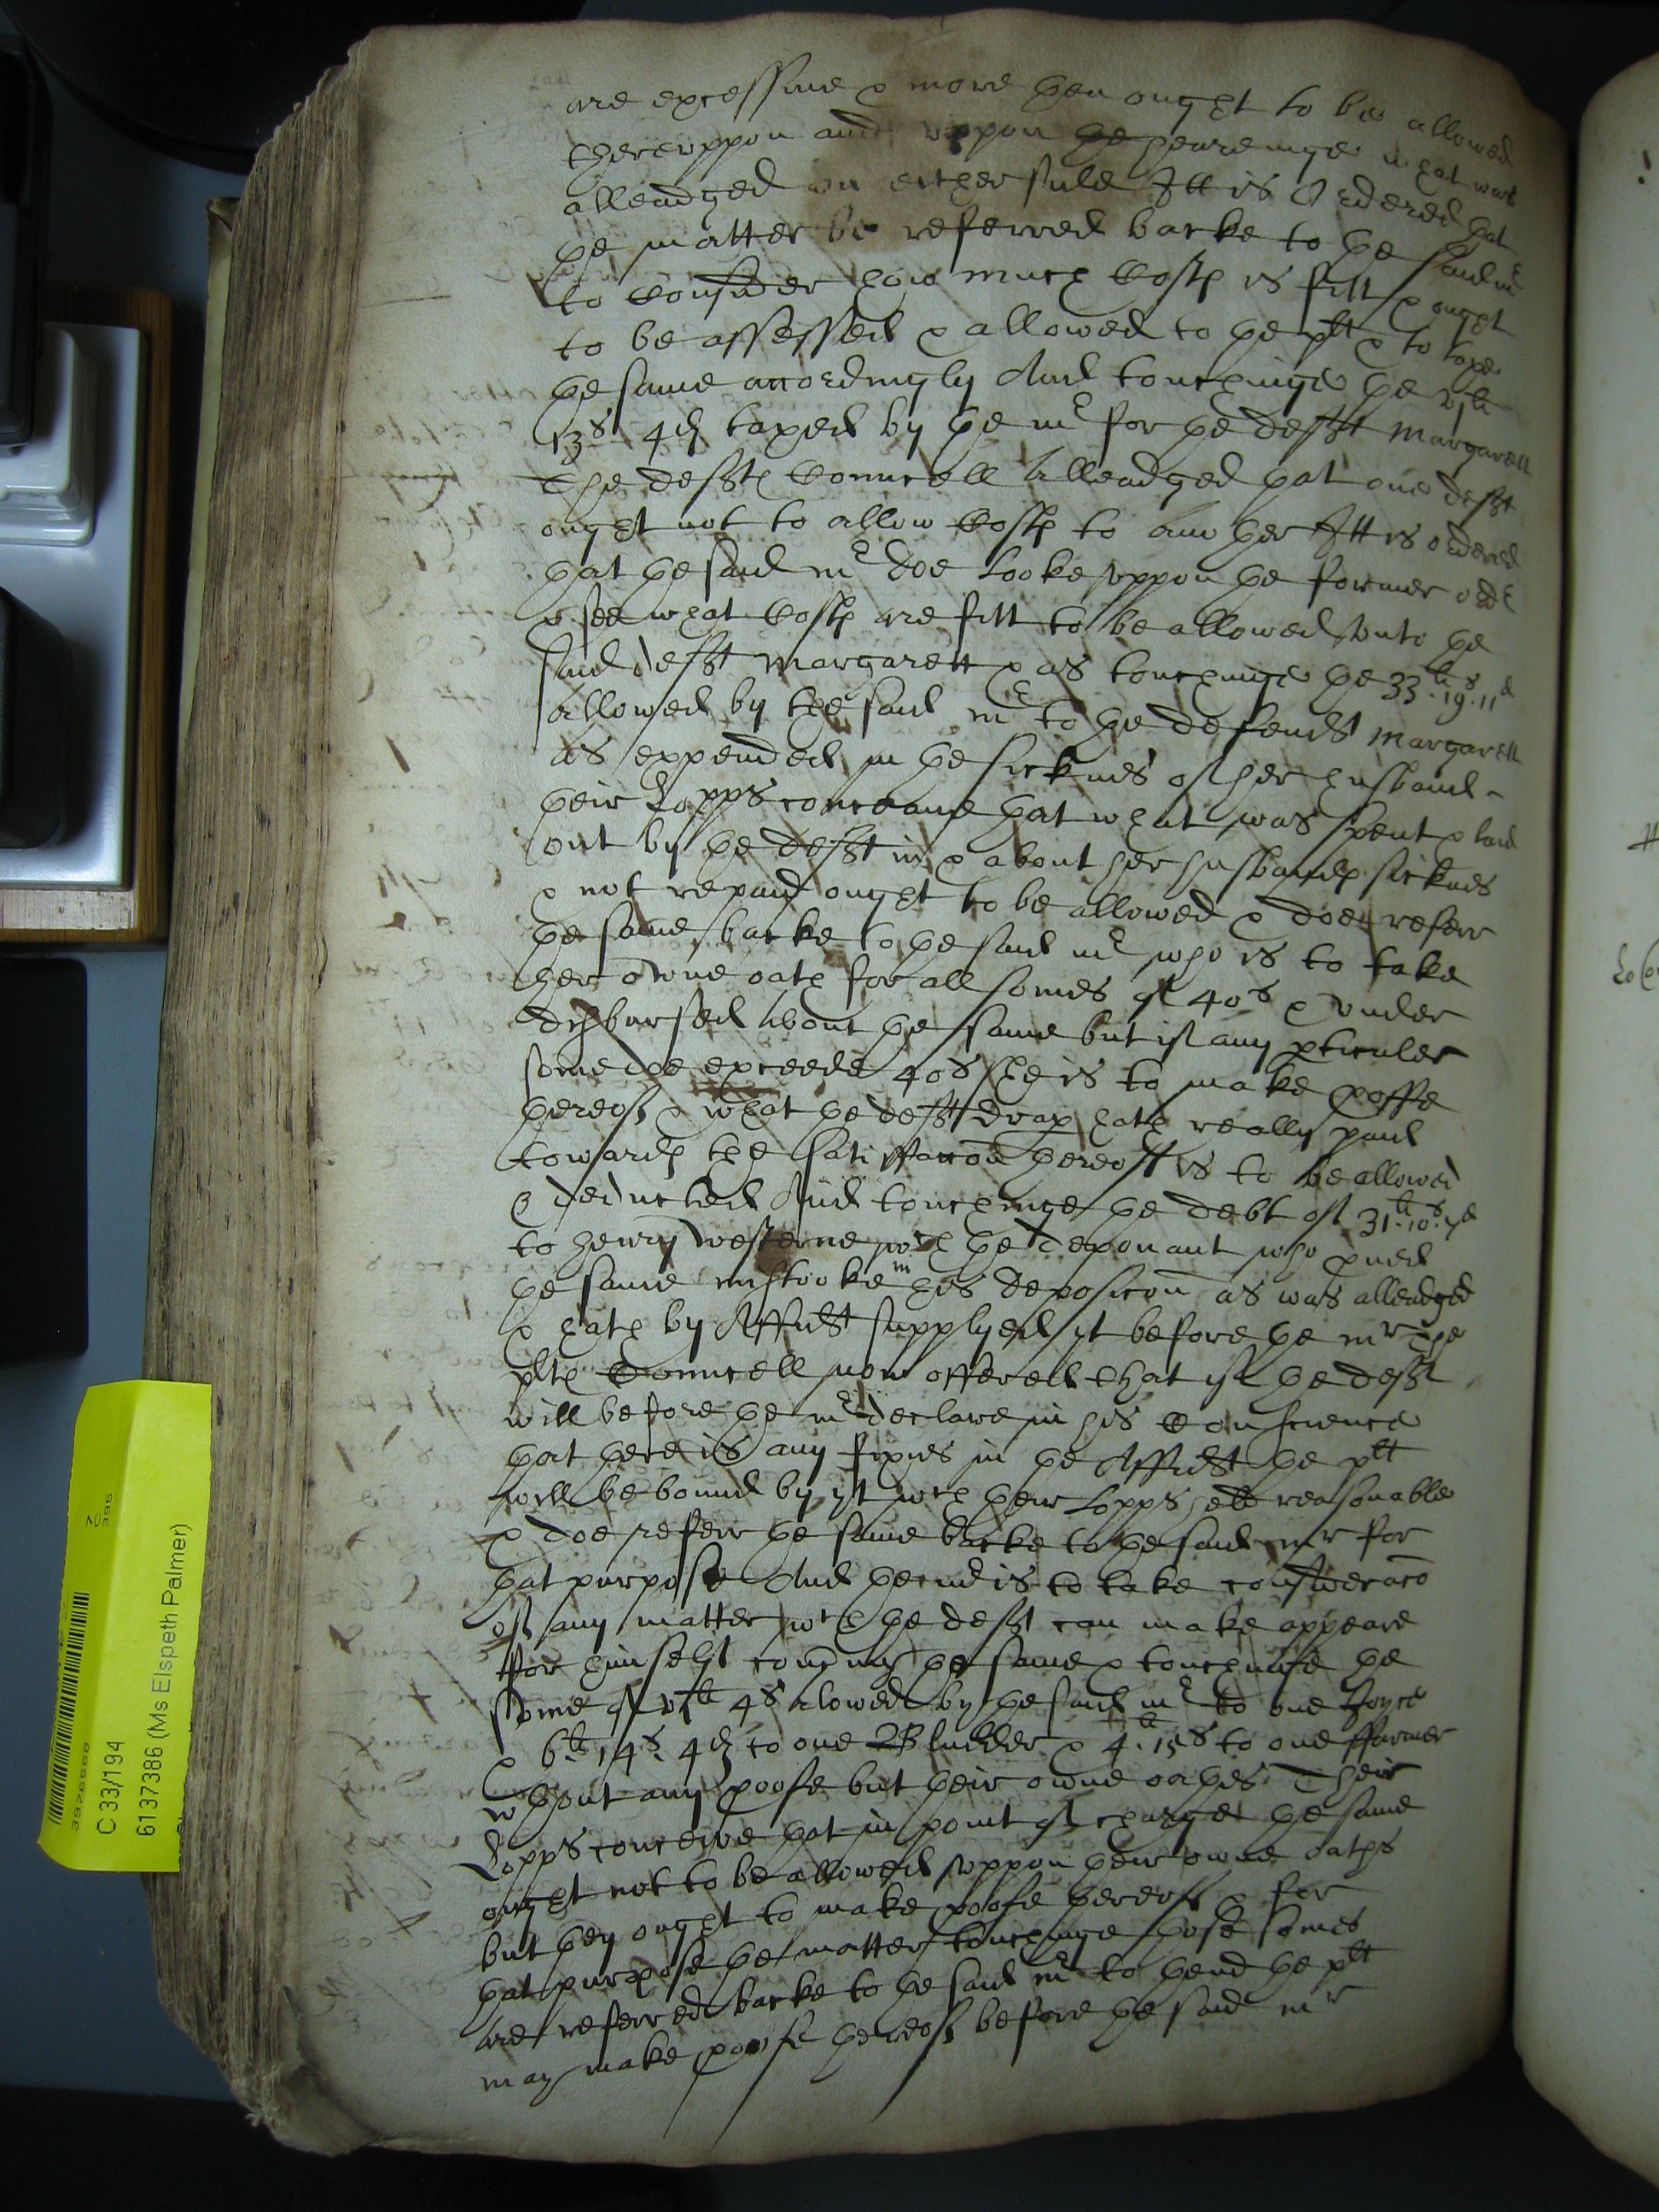 are excessive & more then ought to be allowed
thereuppon and uppon the heareinge what was
alleadged on either side Itt is Ordered that
the matter be referred backe to the said mr
to Consider how much Costs is fitt & ought
to be assessed & allowed to the plt & to taxe
the same accordingly And touchinge the
13s 4d taxed by the mr for the deft Margarett
The defts Councell alleadged that one deft
ought not to allow Costs to another Itt is ordered
that the said mr doe looke uppon the former ordr
& see what Costs are fitt to be allowed unto the
said deft Margarett & as touchinge the 33li 19s 11d
allowed by the said mr to the defendt Margarett
as expended in the sicknes of her husband
their Lopps conceave that what was spent & laid
out by the deft in & about her husbands sicknes
& not repaid ought to be allowed & doe referr
the same backe to the said mr who is to take
her owne oath for all somes of 40s & under
disbursed about the same but if any pticuler
some doe exceede 40s she is to make proffe
thereof & what the deft Drax hath really paid
towards the satisfaccon thereof is to be allowed
& deducted And touchinge the debt of 31li 10s
to Henry Westerne wch the deponant who proved
the same mistooke in his deposicon as was alleadged
& hath by Affidt supplyed yt before the mr The
plts Councell now offered that if the deft
will before the mr declare in his Conscience
that there is any fixnes in the Affidt the plt
will be bound by yt wch their Lopps held reasonable
& doe referr the same backe to the said mr for
that purpose And the mr is to take consideracon
of any matter wch the deft can make appeare
for himselfe concerning the same & touchinge the
some of 4s alowed by the said mr to one Joyce
& 6li 14s 4d to one & 4li 15s to one ffarmer
wthout any proofe but their owne oathes Their
Lopps conceive that in point of charge the same
ought not to be allowed uppon their owne oaths
but they ought to make proofe thereof & for
that purpose the matter touchinge those somes
are referred backe to the said mr to thend the plt
may make proofe thereof before the said mr
C 33/194
6137386 (Ms Elspeth Palmer)